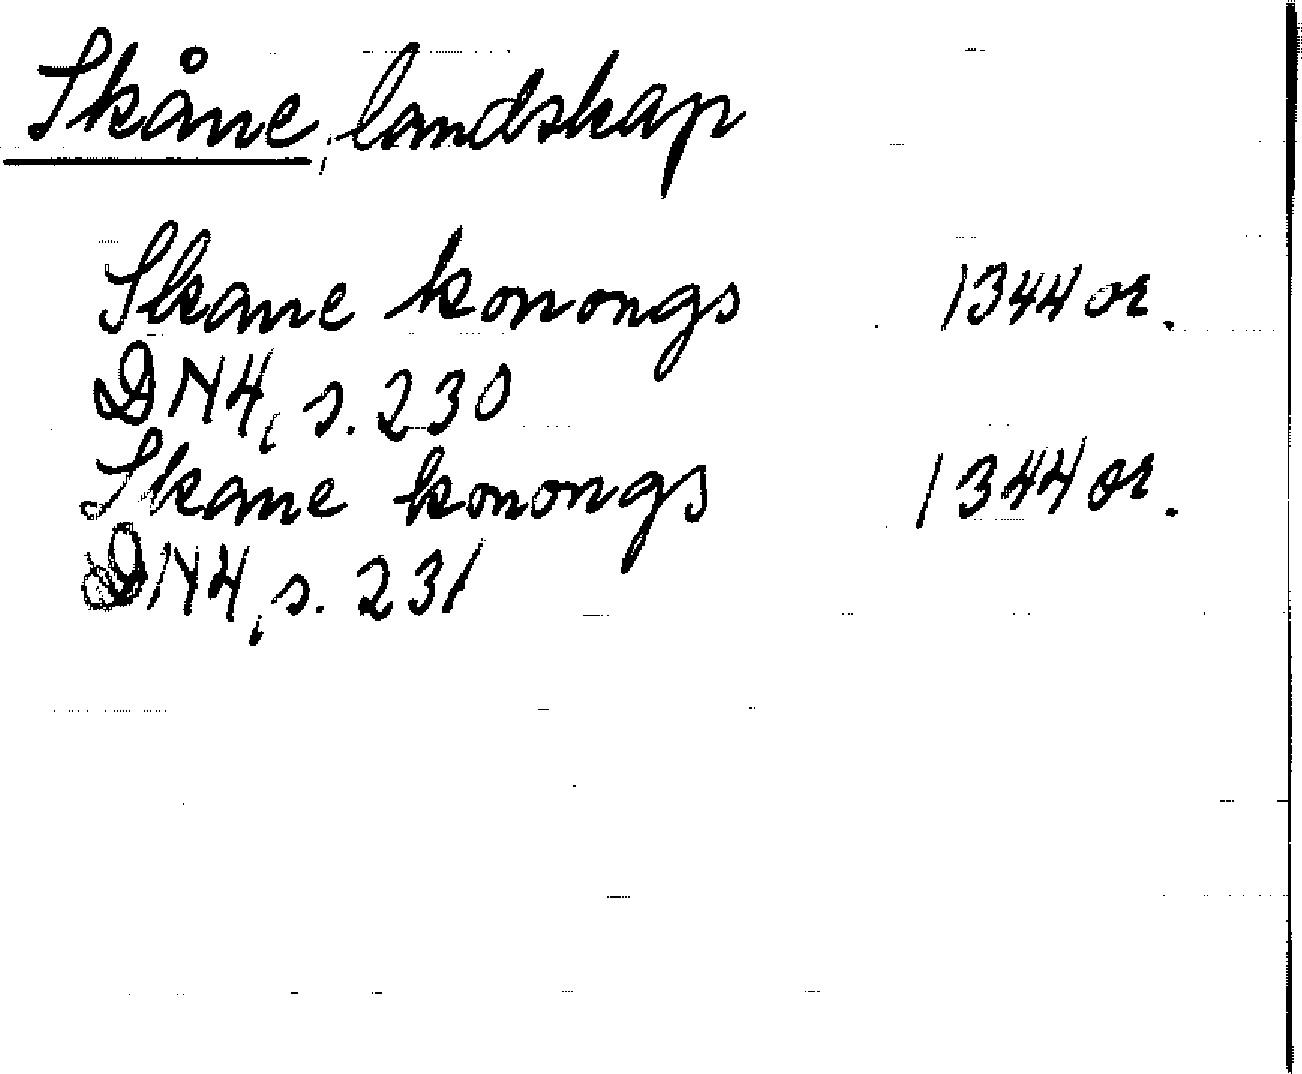 Skåne, landskap
Skane konongs 1344 or.
DN4, s. 230
Skane konongs 1344 or.
DN4, s. 231